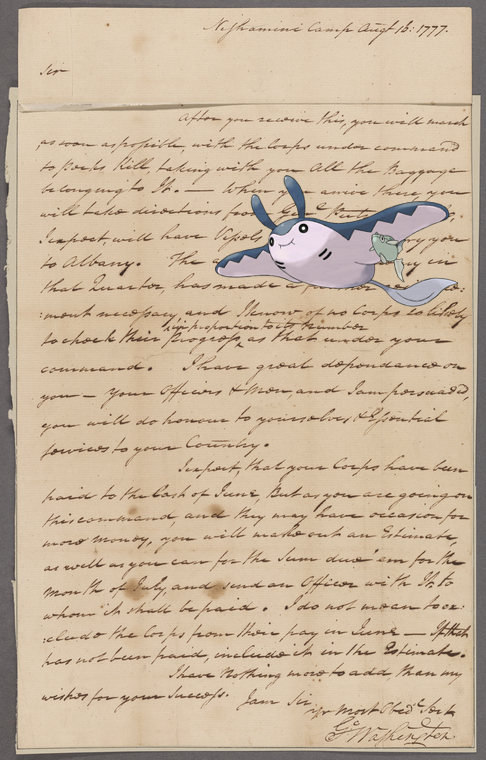 Neshamini Camp Augt 16: 1777.
Sir
After you receive this, you will march
as soon as possible, with the Corps under command
to Peeks Kill, taking with you All the Baggage
belonging to It. — When you arrive there, you
will take directions from Genl Put
I expect, will have Vessels you
to Albany. The in
that Quarter, has made a
:ment necessary, and I know of no Corps so likely
in proportion to its number
to check their Progress, as that under your
command. I have great dependance on
you — your Officers & Men, and I am persuaded,
you will do honour to yourselves, & Essential
services to your Country.
I expect, that your Corps have been
paid to the last of June, But as you are going on
this command, and they may have occasion for
more money, you will make out an Estimate,
as well as you can for the Sum due 'em for the
month of July, and send an Officer with It, to
whom it shall be paid. I do not mean to ex:
:clude the Corps from their pay in June — If that
has not been paid, include it in the Estimate.
I have Nothing more to add, than my
wishes for your Success. I am Sir
Yr Most Obedt Servt
Go Washington